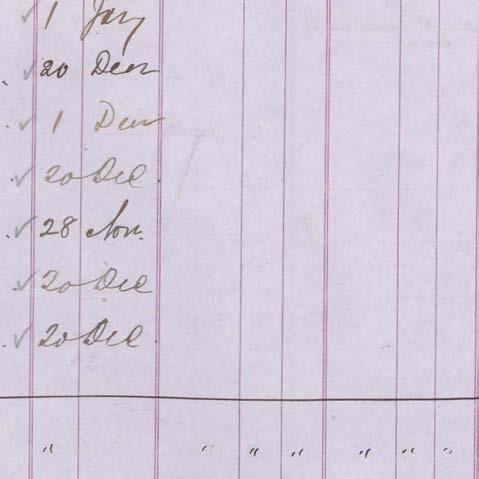 ✓ 1 Jany
✓ 20 Decr
✓ 1 Decr
✓ 20 Dec.
✓ 28 Nov.
✓ 20 Dec
✓ 20 Dec.
" " " " " " "